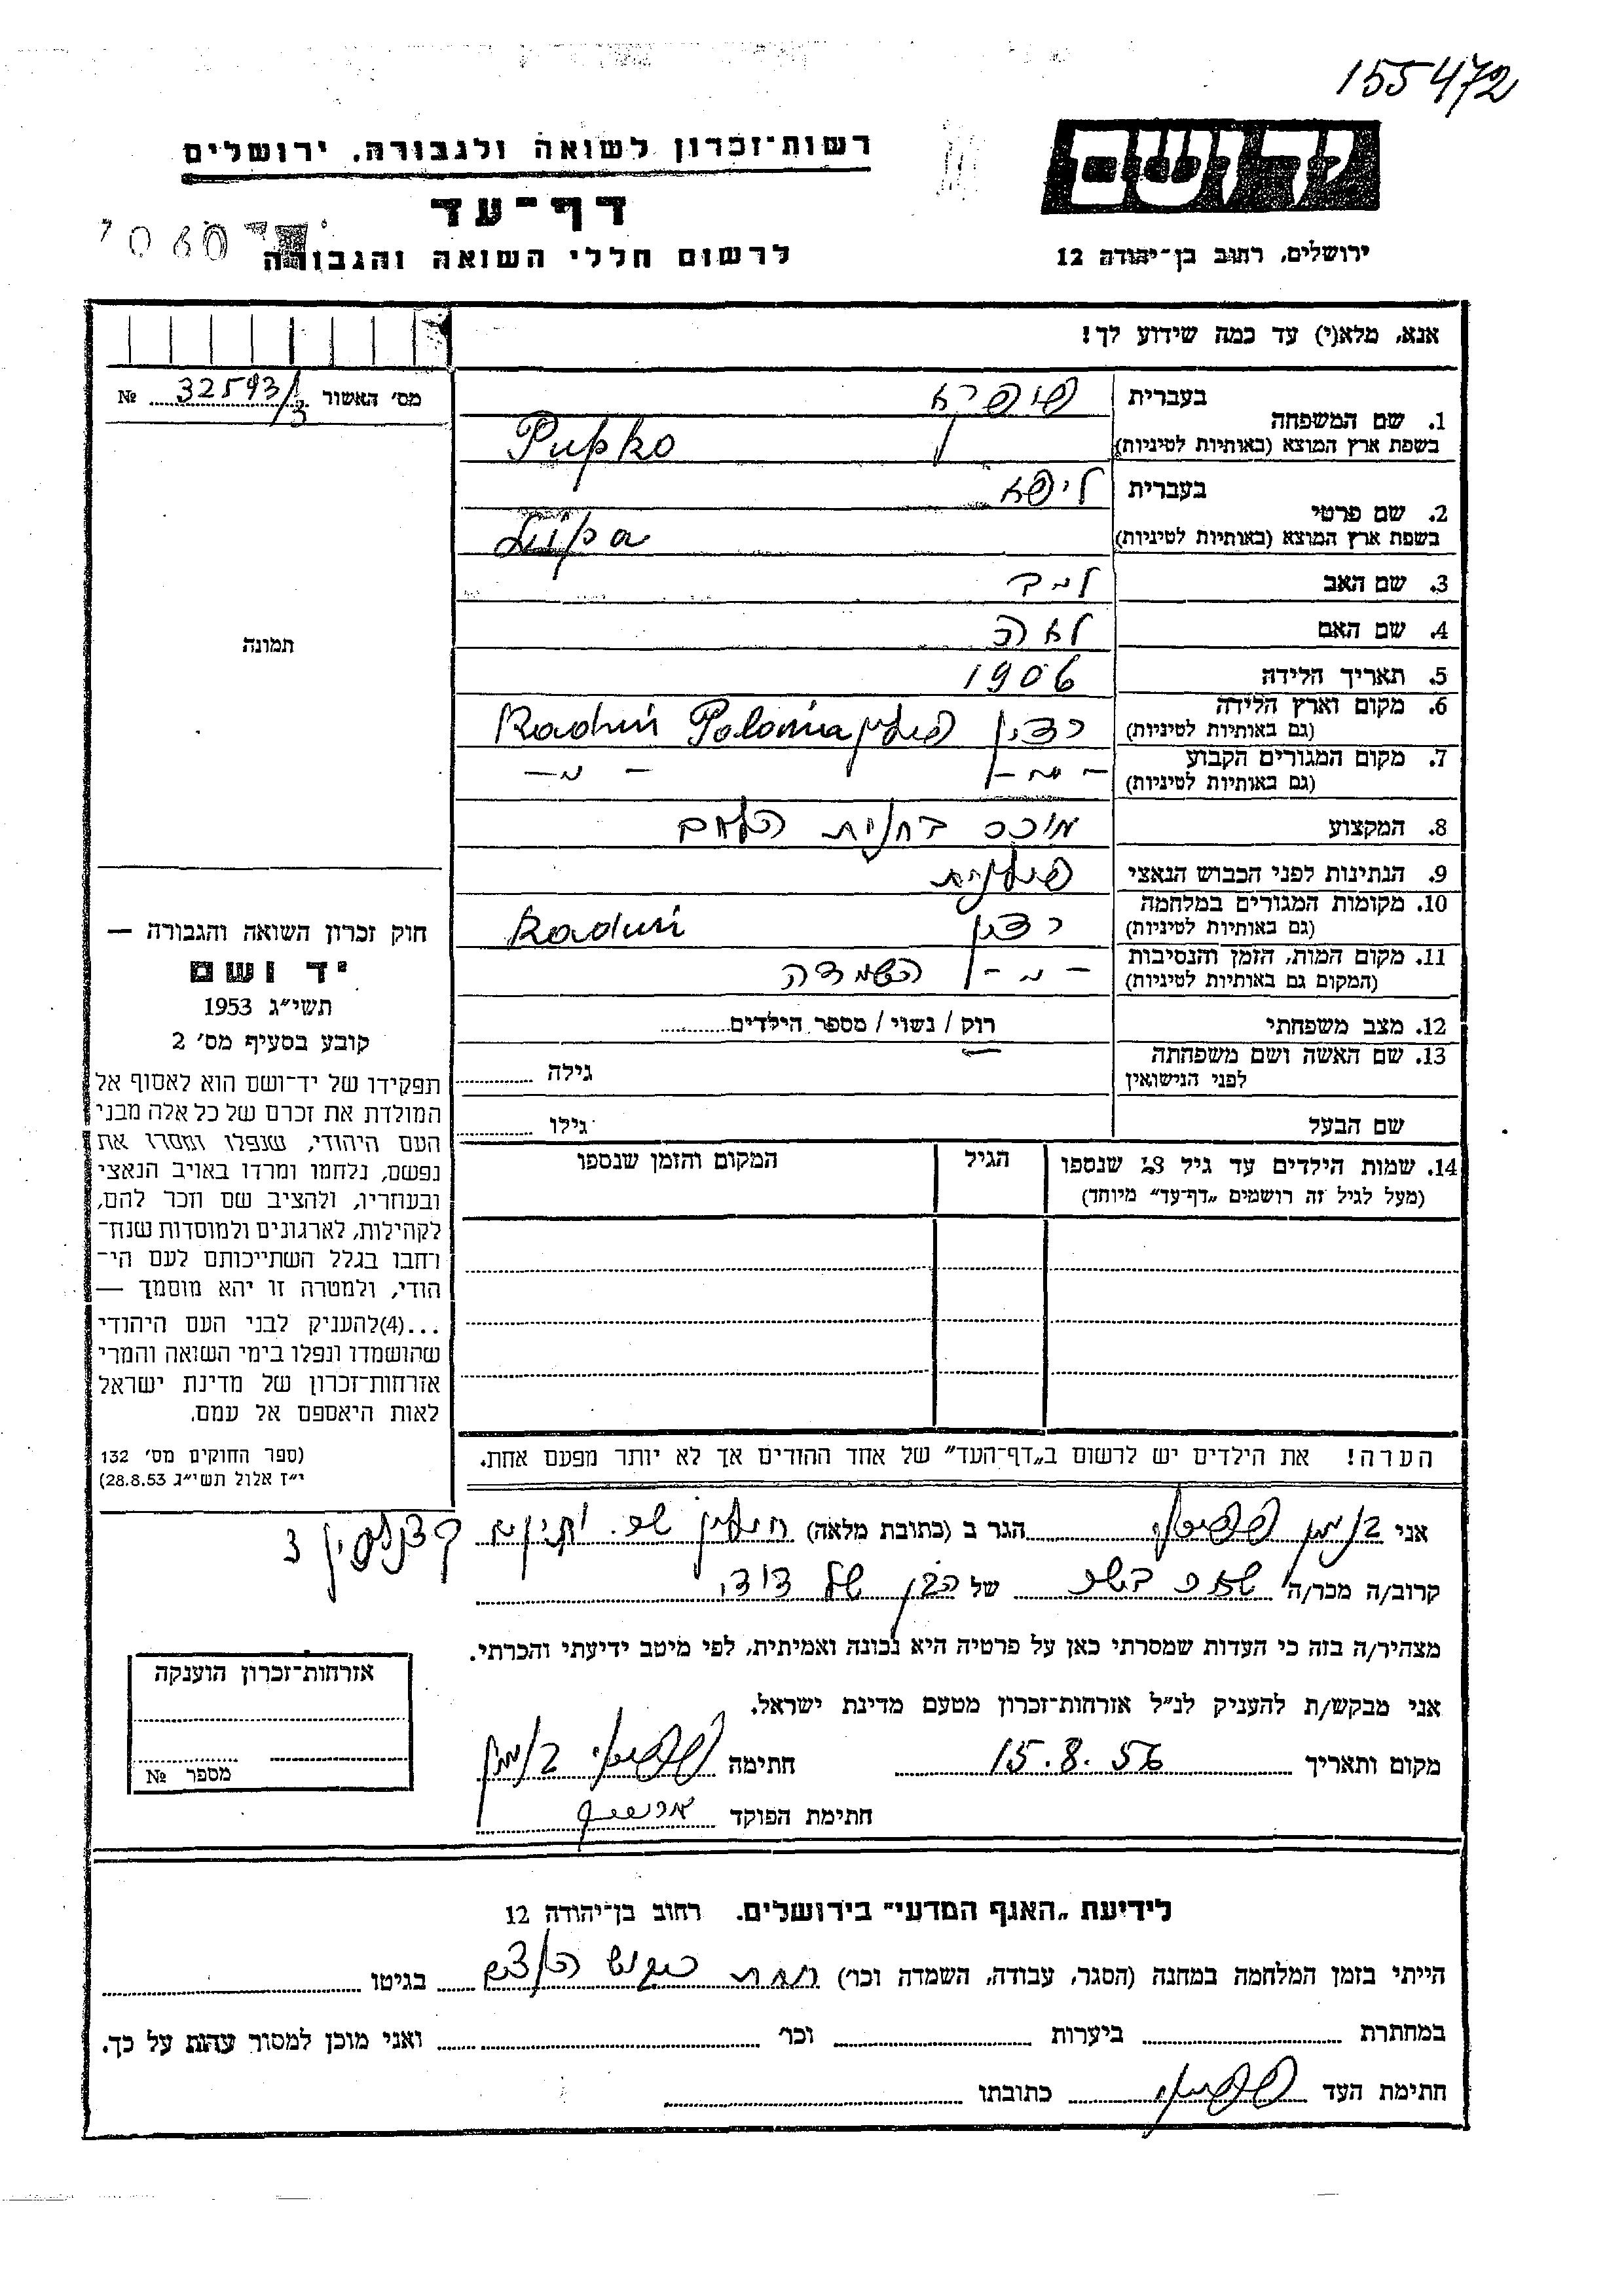 155472
רשות־זכרון לשואה ולגבורה, ירושלים
יד ושם
דף־עד
לרשום חללי השואה והגבורה
ירושלים, רחוב בן־יהודה 12
אנא, מלא(י) עד כמה שידוע לך!
מס׳ האשור 32593/3 №
1. שם המשפחה
בעברית פופקא
בשפת ארץ המוצא (באותיות לטיניות) Pupko
2. שם פרטי
בעברית ליפא
בשפת ארץ המוצא (באותיות לטיניות)
3. שם האב
4. שם האם לאה
5. תאריך הלידה 1906
6. מקום וארץ הלידה
(גם באותיות לטיניות) רדין פולין Raduń Polonia
7. מקום המגורים הקבוע
(גם באותיות לטיניות) — " — — " —
8. המקצוע מוכר בחנות
9. הנתינות לפני הכבוש הנאצי פולנית
10. מקומות המגורים במלחמה
(גם באותיות לטיניות) רדין Raduń
11. מקום המות, הזמן והנסיבות
(המקום גם באותיות לטיניות) — " — השמדה
12. מצב משפחתי רוק / נשוי / מספר הילדים
13. שם האשה ושם משפחתה
לפני הנישואין גילה
שם הבעל גילו
14. שמות הילדים עד גיל 18 שנספו הגיל המקום והזמן שנספו
(מעל לגיל זה רושמים „דף־עד״ מיוחד)
הערה! את הילדים יש לרשום ב„דף־העד״ של אחד ההורים אך לא יותר מפעם אחת.
תמונה
חוק זכרון השואה והגבורה —
יד ושם
תשי״ג 1953
קובע בסעיף מס׳ 2
תפקידו של יד־ושם הוא לאסוף אל
המולדת את זכרם של כל אלה מבני
העם היהודי, שנפלו ומסרו את
נפשם, נלחמו ומרדו באויב הנאצי
ובעוזריו, ולהציב שם וזכר להם,
לקהילות, לארגונים ולמוסדות שנח־
רחבו בגלל השתייכותם לעם הי־
הודי, ולמטרה זו יהא מוסמך —
...(4)להעניק לבני העם היהודי
שהושמדו ונפלו בימי השואה והמרי
אזרחות־זכרון של מדינת ישראל
לאות היאספם אל עמם.
(ספר החוקים מס׳ 132
י״ז אלול תשי״ג 28.8.53)
אני בנימין הגר ב (כתובת מלאה) חולון שכ.
קרוב/ה מכר/ה של הבן של דודי
מצהיר/ה בזה כי העדות שמסרתי כאן על פרטיה היא נכונה ואמיתית, לפי מיטב ידיעתי והכרתי.
אני מבקש/ת להעניק לנ״ל אזרחות־זכרון מטעם מדינת ישראל.
מקום ותאריך 15.8.56 חתימה בנימין
חתימת הפוקד
אזרחות־זכרון הוענקה
מספר №
לידיעת „האגף המדעי״ בירושלים. רחוב בן־יהודה 12
הייתי בזמן המלחמה במחנה (הסגר, עבודה, השמדה וכו׳) תחת כיבוש בגיטו
במחתרת ביערות וכו׳ ואני מוכן למסור עדות על כך.
חתימת העד כתובתו